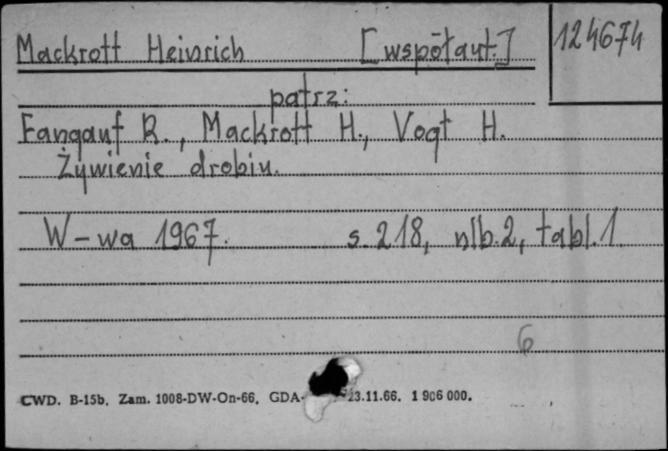 Mackrott Heinrich [współaut.] 124674
patrz:
Fangauf R., Mackrott H., Vogt H.
Żywienie drobiu.
W-wa 1967. s. 218, nlb. 2, tabl. 1.
6
CWD. B-15b. Zam. 1008-DW-On-66. GDA- 23.11.66. 1 906 000.